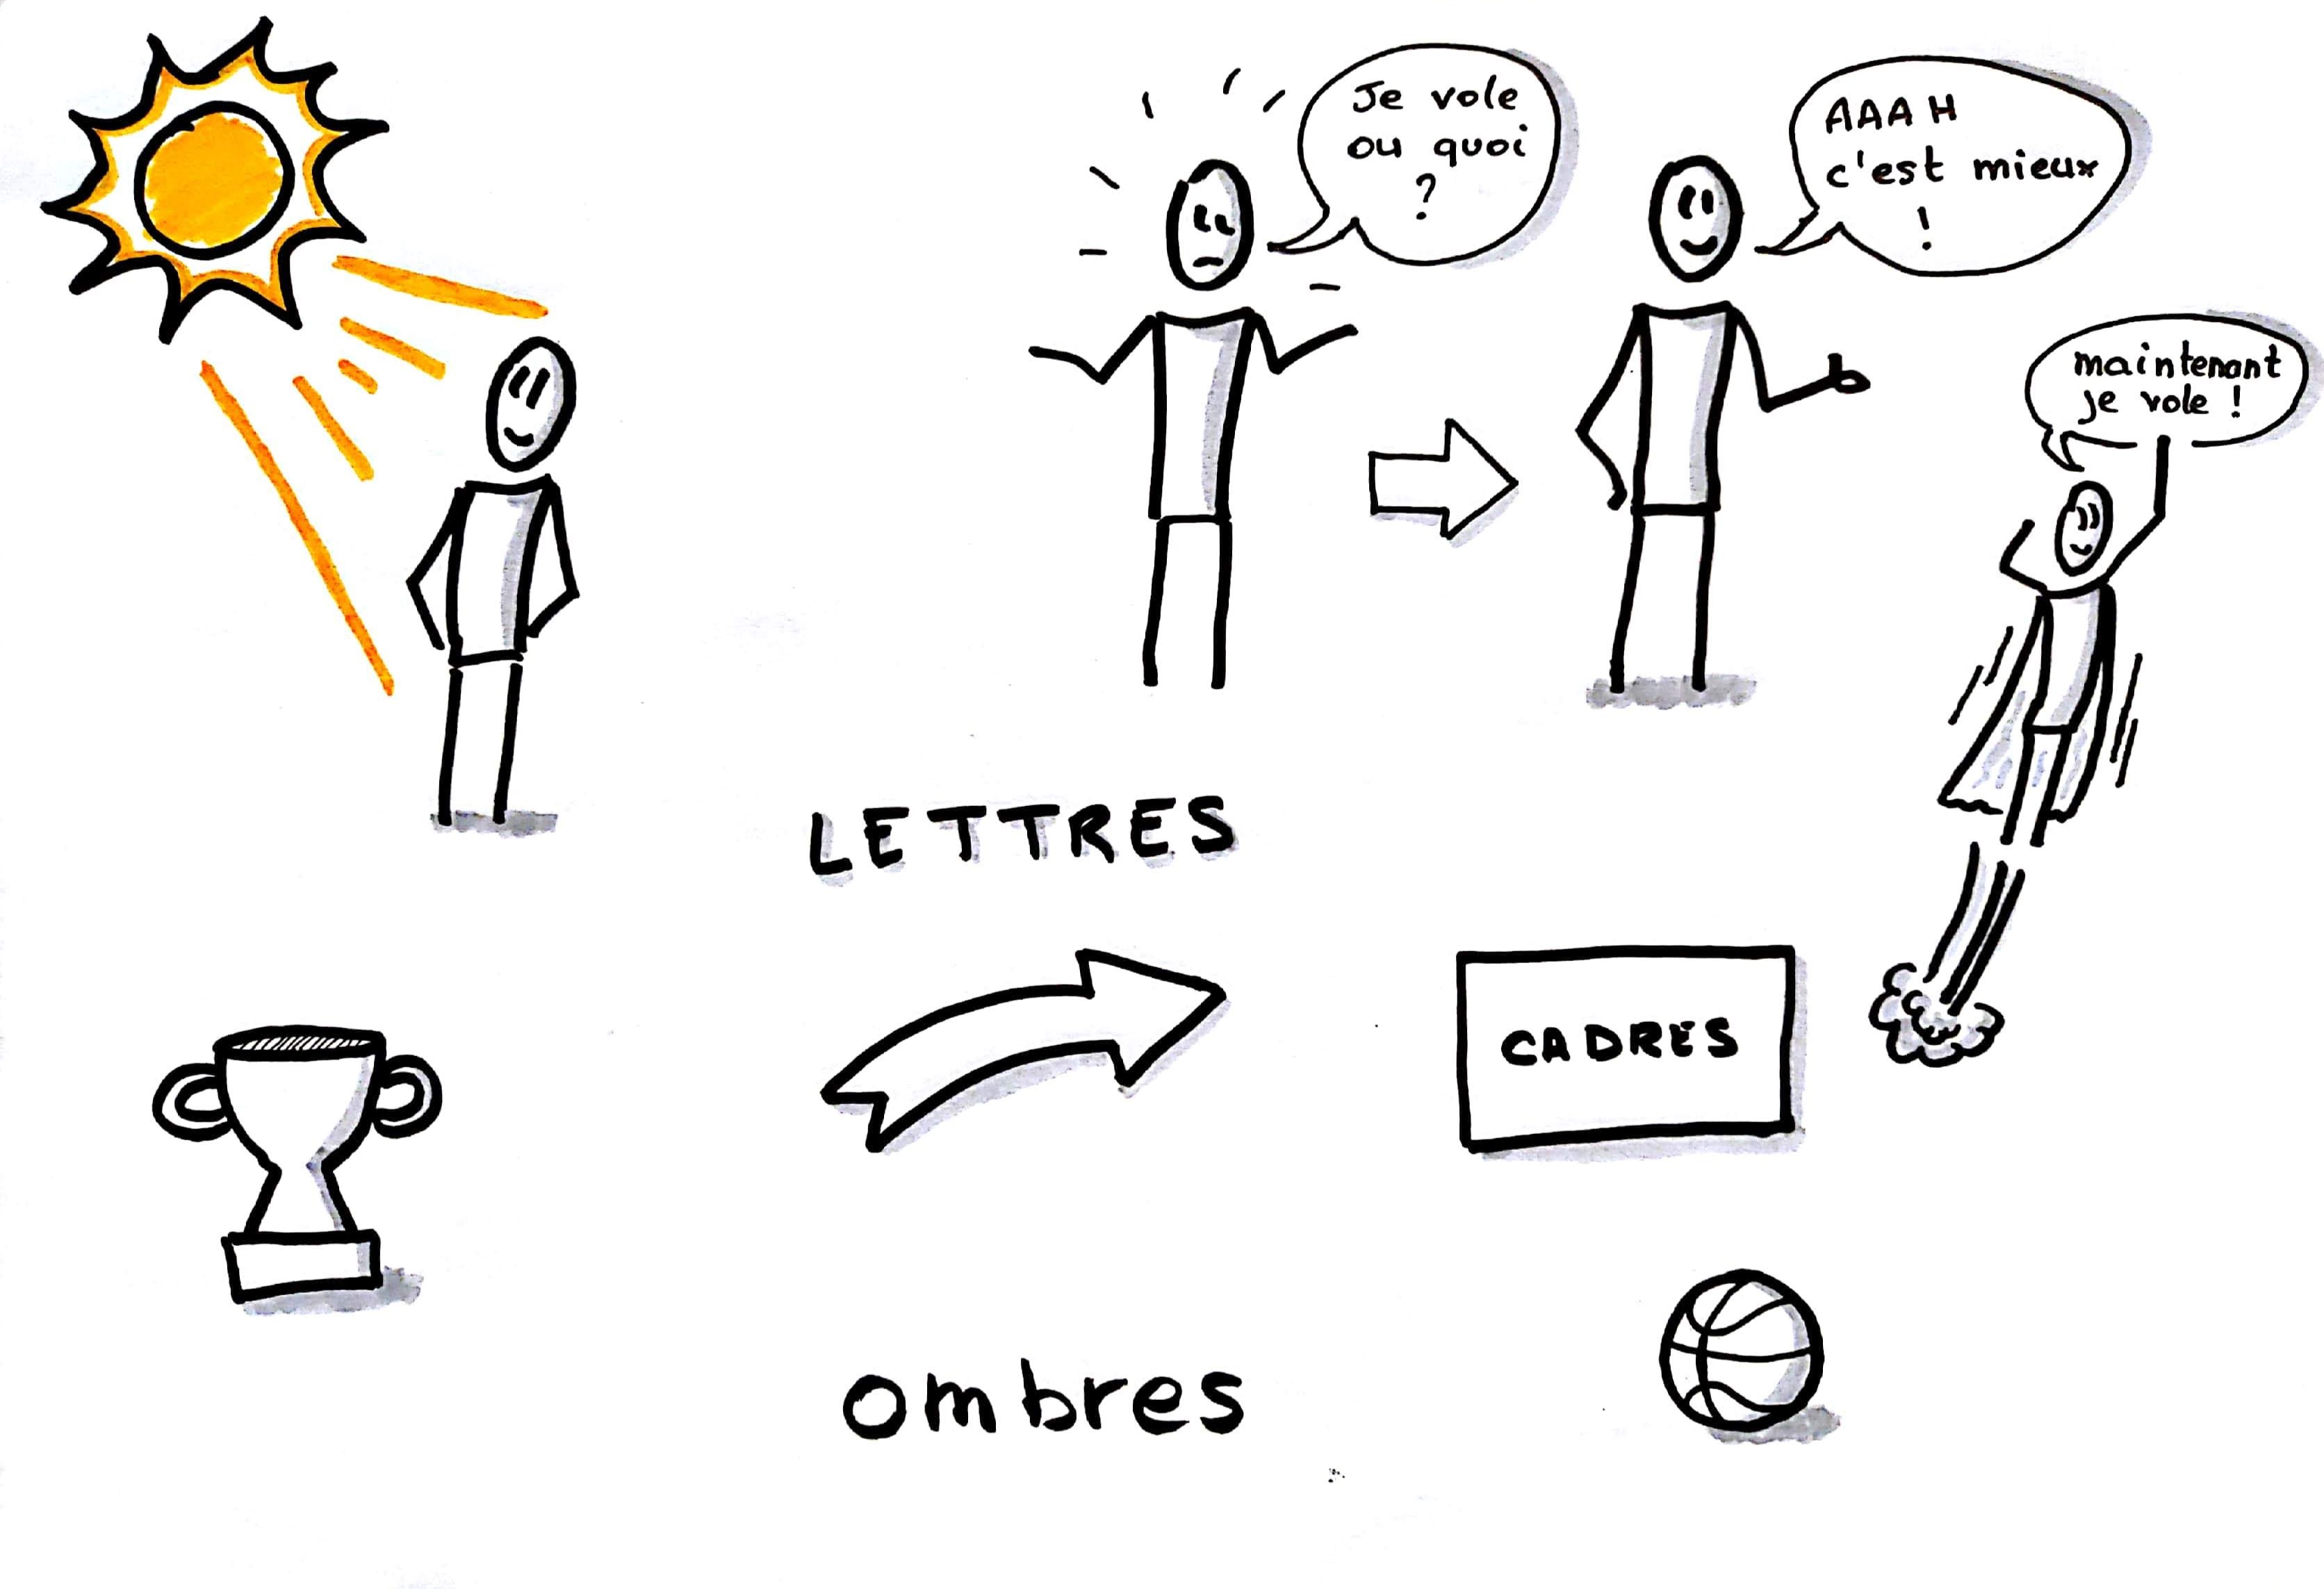 Je vole
ou quoi
?
AAAH
c'est mieux
!
maintenant
je vole !
LETTRES
CADRES
ombres